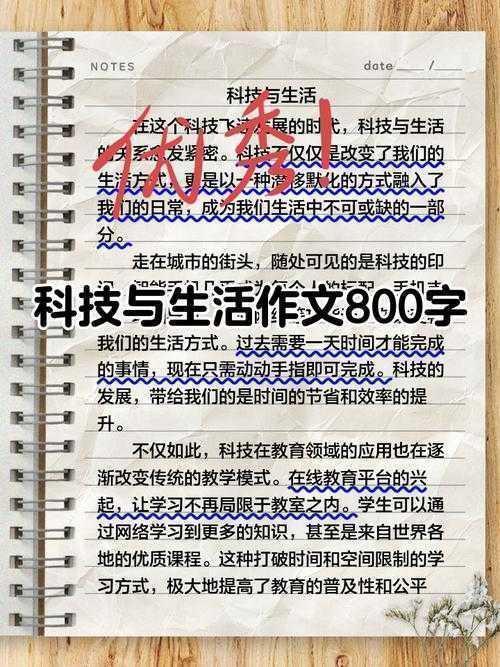 NOTES date /
科技与生活
优秀!
在这个科技飞速发展的时代，科技与生活
的关系愈发紧密。科技不仅仅是改变了我们的
生活方式，更是以一种潜移默化的方式融入了
我们的日常，成为我们生活中不可或缺的一部
分。
走在城市的街头，随处可见的是科技的印
科技与生活作文800字
我们的生活方式。过去需要一天时间才能完成
的事情，现在只需动动手指即可完成。科技的
发展，带给我们的是时间的节省和效率的提
升。
不仅如此，科技在教育领域的应用也在逐
渐改变传统的教学模式。在线教育平台的兴
起，让学习不再局限于教室之内。学生可以通
过网络学习到更多的知识，甚至是来自世界各
地的优质课程。这种打破时间和空间限制的学
习方式，极大地提高了教育的普及性和公平